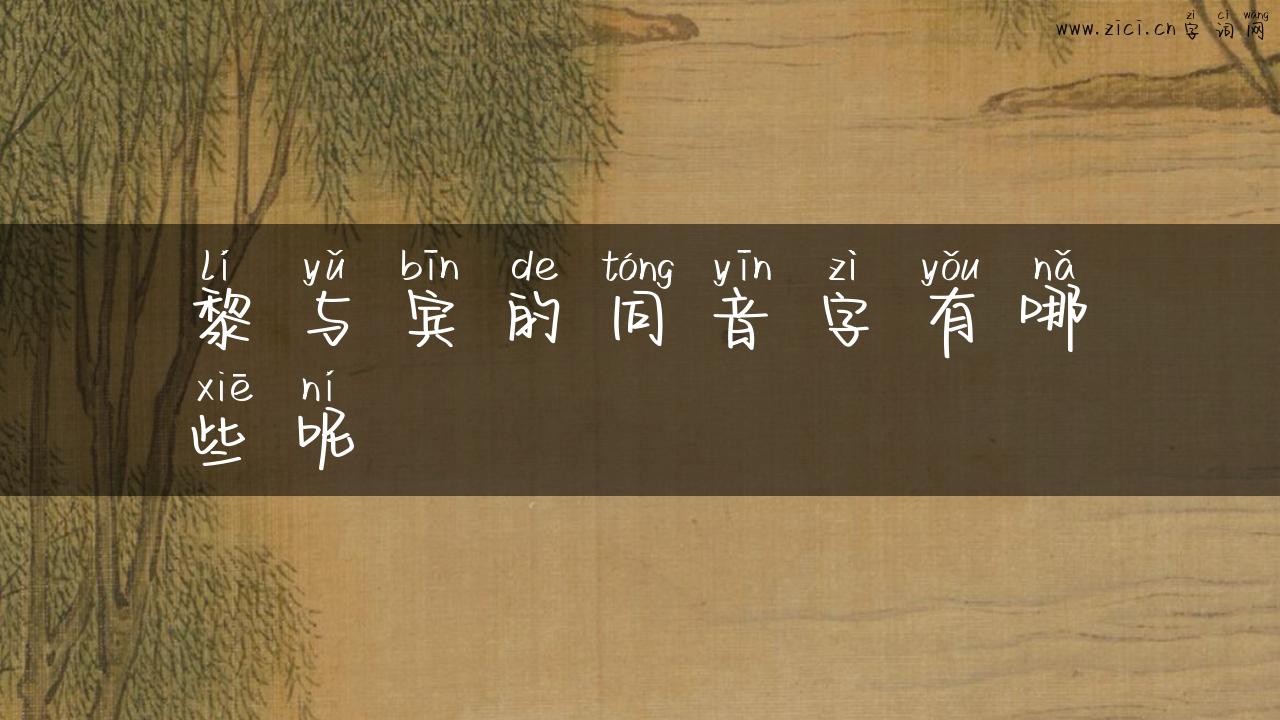 zì cí wǎng
www.zici.cn 字词网
lí yǔ bīn de tóng yīn zì yǒu nǎ
黎与宾的同音字有哪
xiē ní
些呢